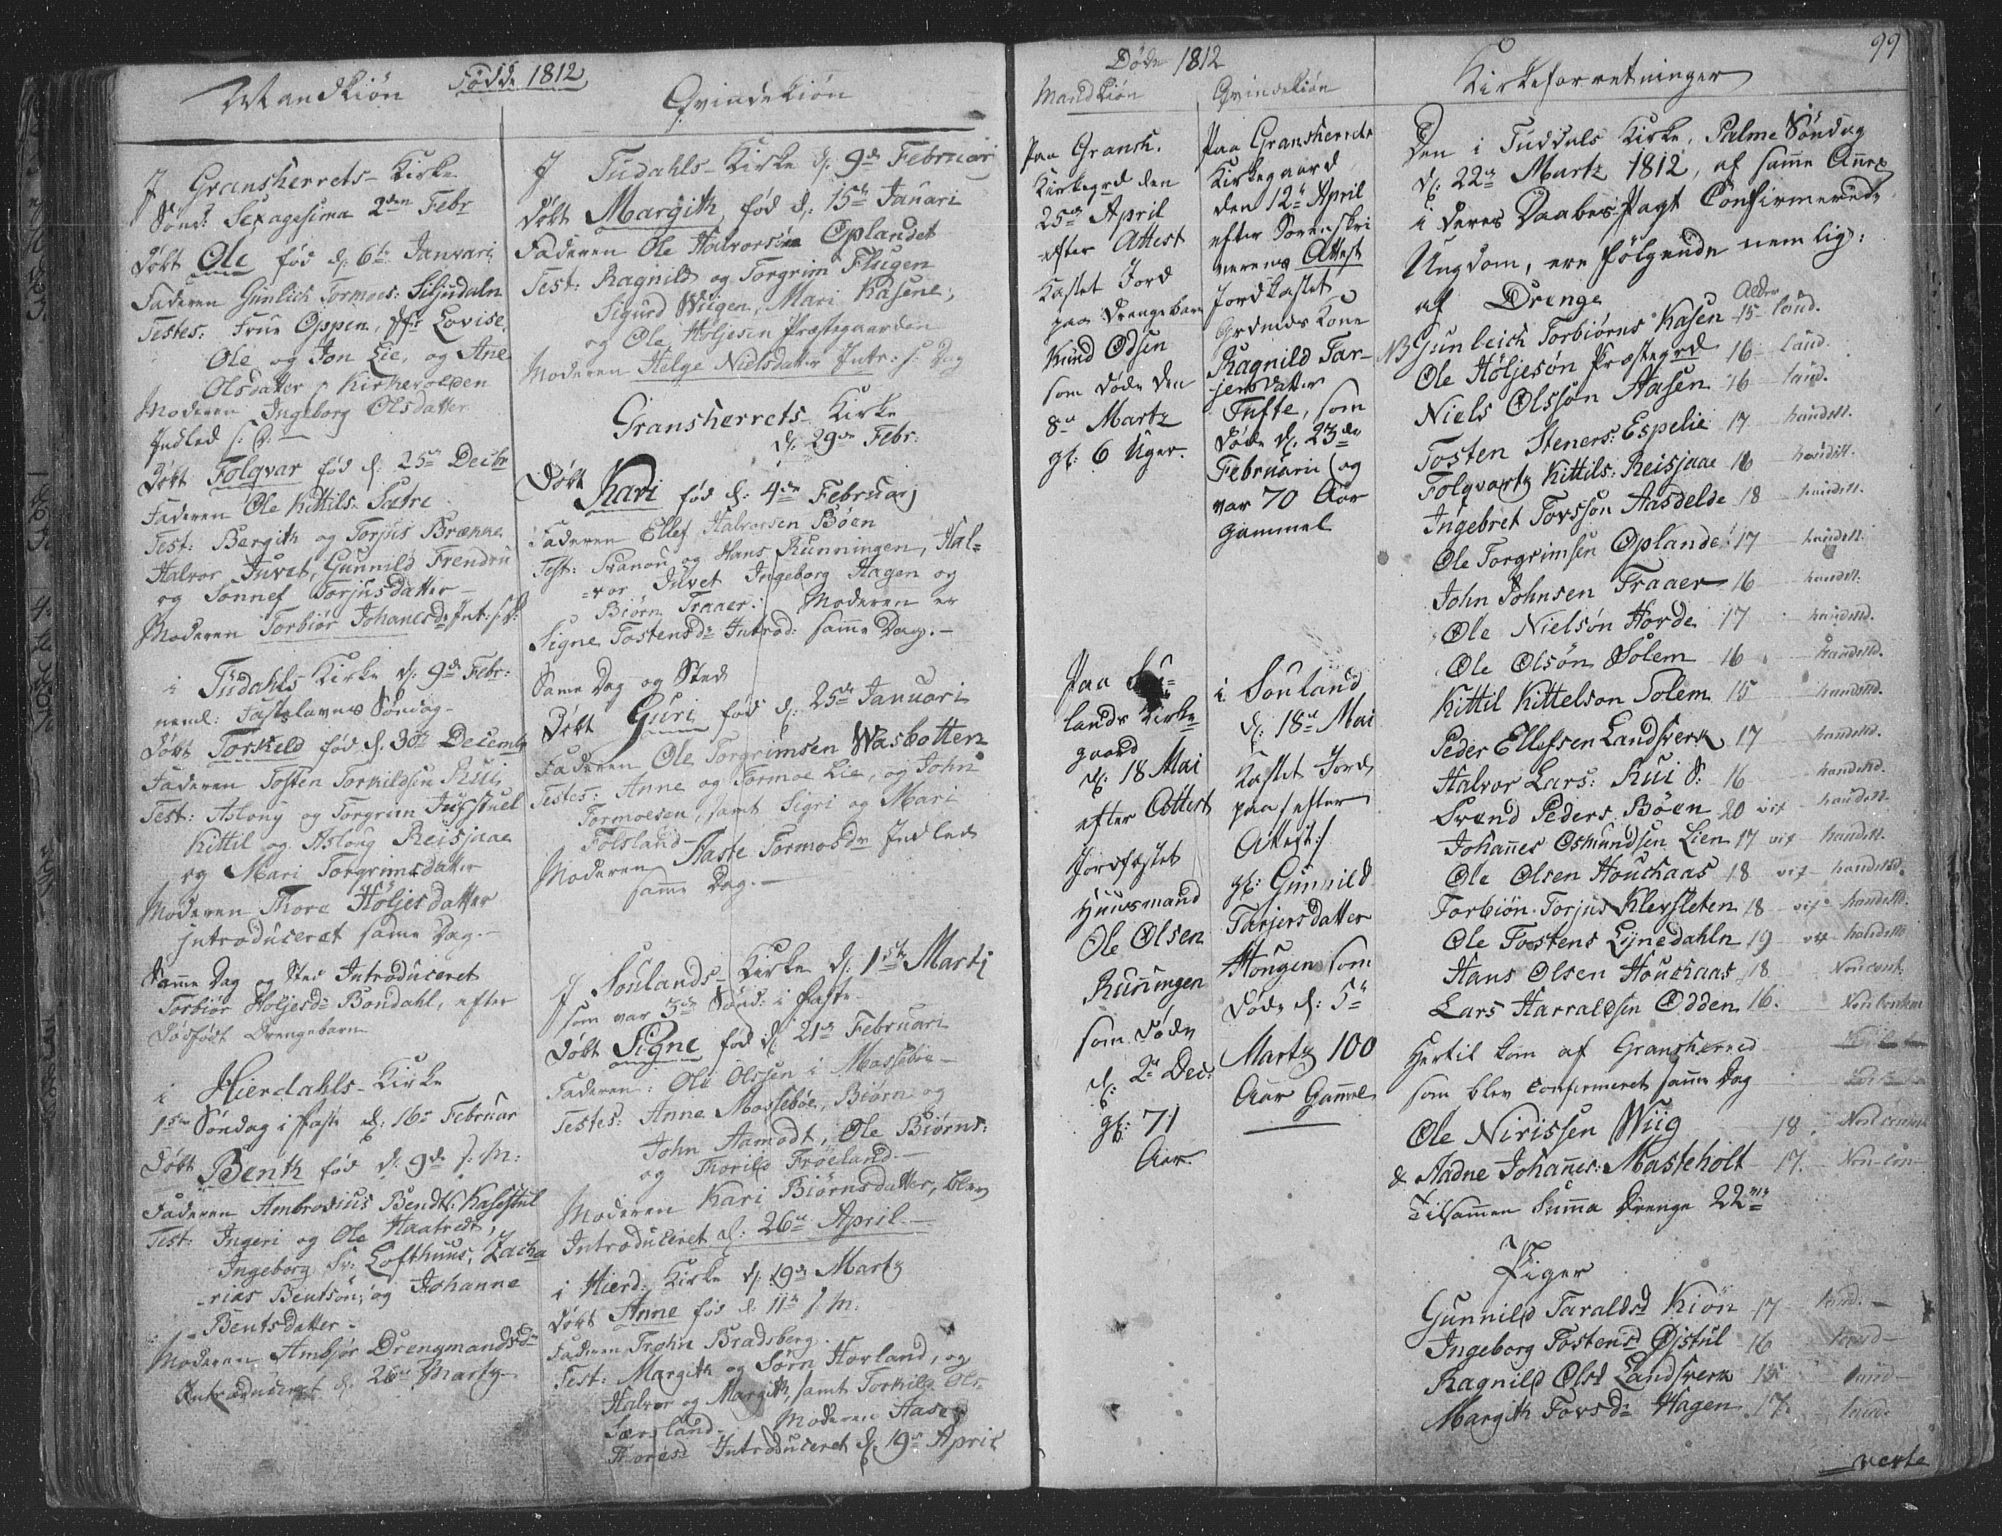 Mandkiøn
Fødde 1812
Qvindekiøn
J Gransherrets Kirke
Sønd: Sexagesima 2den Febr
Døbt Ole fød d: 6te Januari
Faderen Gunlich Tormoes: Siljudaln
Testes: Frue Oppen, Lovise,
Ole og Jon Lie, og Ane
Olsdatter Kirkevolden
Moderen Ingeborg Olsdatter
Indled s: D:
Døbt Folqvar fød d: 25de Decbr
Faderen Ole Kittils: Satre
Test: Bergith og Torjus Brænne
Halvor Juvet, Gunnild Frendru
og Sonnef Torjusdatter
Moderen Torbiør Johanesdr Int: s: D:
i Tudahls Kirke d: 9de Febr:
neml: Fastelavns Søndag
Døbt Torkeld fød d: 30te Decemb
Faderen Tosten Torkildsen Rui,
Test: Aslong og Torgrim Juvstuel
Kittil og Aslong Reisjaae
og Mari Torgrimsdatter
Moderen Thore Høljesdatter
introduceret same Dag.
Samme Dag og Sted Introduceret
Torbiør Høljesdr Bondahl, efter
Dødfødt Drengebarn
i Hierdahls Kirke
1ste Søndag i Faste d: 16de Februar
Døbt Benth fød d: 9de s: M:
Faderen Ambrosius Bendts: Kasestul
Test: Ingeri og Ole Haatvedt,
Ingeborg Sr: Lofthuus, Zacha
rias Bentsøn, og Johanne
Bentsdatter
Moderen Ambjør Drengmandsdr
Introduceret d: 26de Martz
J Tudahls Kirke d: 9de Februari
Døbt Margith fød d: 15de Januari
Faderen Ole Halvorsøn Oplandet
Test: Ragnild og Torgrim Flugen
Sigurd Wiigen, Mari Kasene,
og Ole Høljesen Præstegaarden
Moderen Helge Nielsdatter Intr: s: Dag
Gransherrets Kirke
d: 29de Febr:
Døbt Kari fød d: 4de Februarj
Faderen Ellef Halvorsen Bøen
Test: Svanou og Hans Runningen, Hal=
=vor Juvet Ingeborg Hagen og
Biørn Traaer: Moderen er
Signe Tostensdr Introd: samme Dag.
Same Dag og Sted
Døbt Guri fød d: 25de Januari
Faderen Ole Torgrimsen Wasbotten
Testes: Anne og Tormoe Lie, og John
Tormoesen, samt Sigri og Mari
Folsland
Moderen Aaste Tormosdr Indled
samme Dag.
J Soulands Kirke d: 1ste Martj
som var 3de Sønd: i Faste
Døbt Signe fød d: 21de Februari
Faderen: Ole Olssen i Mossebøe
Testes: Anne Mossebøe, Biørn og
John Aamodt, Ole Biørns:
og Thorild Frøeland.
Moderen Kari Biørnsdatter, blev
Introduceret d: 26de April.
i Hierd: Kirke d: 19de Martz
Døbt Anne fød d: 11te s: M:
Faderen Trohn Bradsberg.
Test: Margith og Sørn Horland, og
Halvor og Margith, samt Torkild Ols
Særsland. Moderen Aase
Thoresd Introduceret d: 19de April
Døde 1812
Mandkiøn
Paa Gransh.
Kirkegrd den
25de April
efter Attest
Kastet Jord
paa Drengebarn
Knud Odsen
som døde den
8de Martz
gl: 6 Uger.
Paa Sou=
lands Kirke
gaard
d: 18 Mai
efter Attest
Jordfæstet
Huusmand
Ole Olsen
Runningen
som døde
d: 2de Dec:
gl: 71
Aar.
Qvindekiøn
Paa Gransherrets
Kirkegaard
den 12te April
efter Sorenskri
verens Attest
Jordkastet
Ordnids Kone
Ragnild Tar-
jersdatter
Tufte, som
døde d: 23de
Februarii og
var 70 Aar
gammel
i Souland
d: 18de Mai
Kastet Jord
paa efter
Attest:/
gl: Gunnild
Tarjersdatter
Hougen som
døde d: 5te
Martz 100
Aar Gamel
99
Kirkeforretninger
Den i Tuddals Kirke, Palme Søndag
d: 22de Martz 1812, af samme Annex
i deres Daabes-Pagt Confirmerede
Ungdom, ere følgende nemlig:
af Drenge Alder
NB Gunleich Torbiørns Kasen 15 laud.
Ole Höljesøn Præstegrd 16 laud.
Niels Olssøn Aasen 16 laud.
Tosten Steners: Espelie 17 haudill.
Folqvartz Kittils: Reisjaae 16 haudill.
Ingebret Tovssøn Aasdelde 18 haudill.
Ole Torgrimsen Oplande 17 haudill.
John Johnsen Traaer 16 haudill.
Ole Nielsøn Horde 17 haudill.
Ole Olsøn Solem 16 haudill.
Kittil Kittelson Solem 15 haudill.
Peder Ellefsen Landsverk 17 haudill.
Halvor Lars: Rui S: 16 haudill.
Svend Peders. Bøen 20 vix haudill.
Johannes Osmundsen Lien 17 vix haudill.
Ole Olsen Houkaas 18 vix haudill.
Torbiøn Torjus Klevsleten 18 vix haudill.
Ole Tostens Lynedahln 19 vix haudill.
Hans Olsen Houkaas 18 Non cont.
Lars Harraldsen Odden 16. Non contem
Hertil kom af Gransherred
som blev confirmeret samme Dag
Ole Nirissen Wiig 18. Non contem
& Aadne Johanes: Masteholt 17. Non con
Tilsammen Summa Drenge 22
Piger
Gunnild Taraldsd Kiøn 17 laud.
Ingeborg Tostensd Øjstul 16 laud
Ragnild Olsd Landsverk 15 laud
Margith Tovsdr Hagen 17. laud.
verte